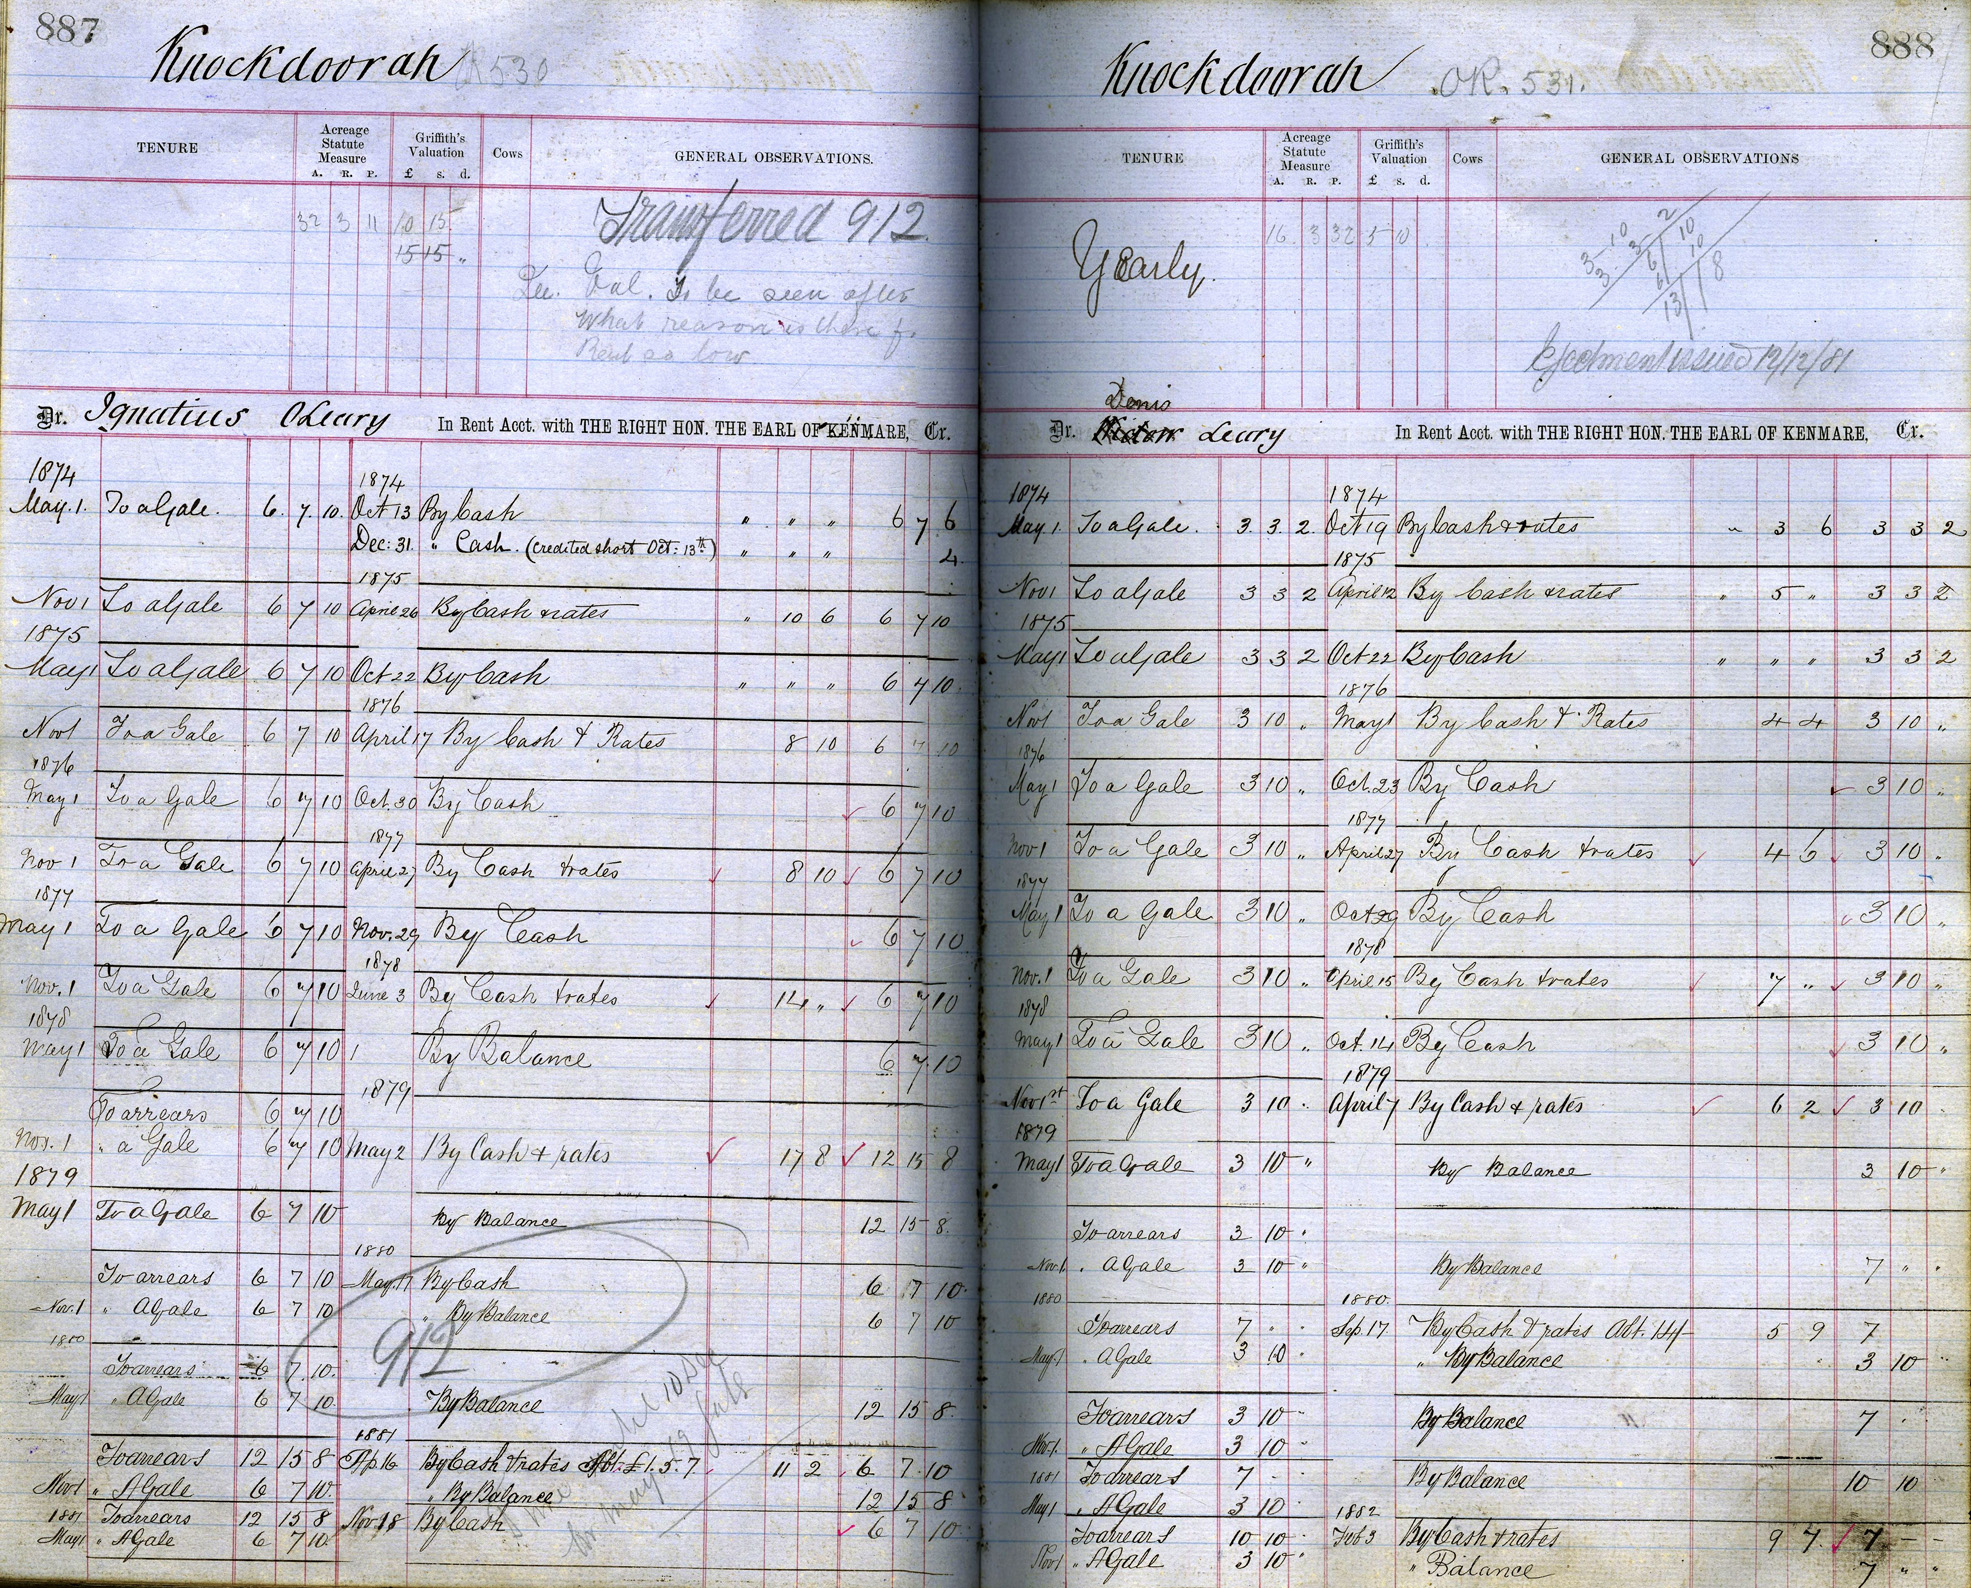 887
Knockdoorah OR 530
TENURE Acreage Statute Measure A. R. P. Griffith's Valuation £ s. d. Cows GENERAL OBSERVATIONS.
32 3 11 10 15 Transferred 912
15 15 "
Val. To be seen after
What reason is there f.
Rent so low
Dr. Ignatius OLeary In Rent Acct. with THE RIGHT HON. THE EARL OF KENMARE, Cr.
1874 1874
May. 1. To a Gale. 6. 7. 10. Oct 13 By Cash " " " 6 7 6
Dec: 31. " Cash. (credited short Oct: 13th) " " " 4
1875
Nov 1 To a Gale 6 7 10 April 26 By Cash & rates " 10 6 6 7 10
1875
May 1 To a Gale 6 7 10 Oct 22 By Cash " " " 6 7 10
1876
Nov 1 To a Gale 6 7 10 April 17 By Cash & Rates 8 10 6 7 10
1876
May 1 To a Gale 6 7 10 Oct. 30 By Cash 6 7 10
1877
Nov 1 To a Gale 6 7 10 April 27 By Cash & rates 8 10 6 7 10
1877
May 1 To a Gale 6 7 10 Nov. 29 By Cash 6 7 10
1878
Nov. 1 To a Gale 6 7 10 June 3 By Cash & rates 14 " 6 7 10
1878
May 1 To a Gale 6 7 10 By Balance 6 7 10
1879
To arrears 6 7 10
Nov. 1 " a Gale 6 7 10 May 2 By Cash & rates 17 8 12 15 8
1879
May 1 To a Gale 6 7 10 By Balance 12 15 8
1880
To arrears 6 7 10 May. 17 By Cash 6 7 10
Nov. 1 " A Gale 6 7 10 " By Balance 6 7 10
1880
912
To arrears 6 7. 10.
May 1 " A Gale 6 7 10 By Balance 12 15 8
1881
To arrears 12 15 8 Ap 16 By Cash & rates Abt. £1. 5. 7 11 2 6 7. 10
Nov 1 " A Gale 6 7 10 " By Balance 12 15 8
1881 To arrears 12 15 8 Nov 18 By Cash 6 7 10
May 1 " A Gale 6 7 10
888
Knockdoorah OR. 531.
TENURE Acreage Statute Measure A. R. P. Griffith's Valuation £ s. d. Cows GENERAL OBSERVATIONS
16. 3 32 5 10
Yearly.
Ejectment issued 12/12/81
Denis
Dr. Widow Leary In Rent Acct. with THE RIGHT HON. THE EARL OF KENMARE, Cr.
1874 1874
May 1. To a Gale. 3. 3. 2. Oct 19 By Cash & rates " 3 6 3 3 2
1875
Nov 1 To a Gale 3 3 2 April 12 By Cash & rates " 5 " 3 3 2
1875
May 1 To a Gale 3 3 2 Oct 22 By Cash " " " 3 3 2
1876
Nov 1 To a Gale 3 10 " May 1 By Cash & Rates 4 4 3 10 "
1876
May 1 To a Gale 3 10 " Oct. 23 By Cash 3 10 "
1877
Nov 1 To a Gale 3 10 " April 27 By Cash & rates 4 6 3 10 "
1877
May 1 To a Gale 3 10 " Oct 29 By Cash 3 10 "
1878
Nov. 1 To a Gale 3 10 " April 15 By Cash & rates 7 " 3 10 "
1878
May 1 To a Gale 3 10 " Oct. 14 By Cash 3 10 "
1879
Nov 1st To a Gale 3 10 " April 7 By Cash & rates 6 2 3 10
1879
May 1 To a Gale 3 10 " By Balance 3 10 "
To arrears 3 10 "
Nov 1 " A Gale 3 10 " By Balance 7 " "
1880 1880.
To arrears 7 " " Sep. 17. By Cash & rates Abt. 14/- 5 9 7
May. 1 " A Gale 3 10 " " By Balance 3 10
To arrears 3 10 " By Balance 7
Nov. 1. " A Gale 3 10 "
1881 To arrears 7 By Balance 10 10
May 1 " A Gale 3 10 1882
To arrears 10 10 Feb 3 By Cash & rates 9 7. 7 - -
Nov 1 " A Gale 3 10 " " Balance 7 " "